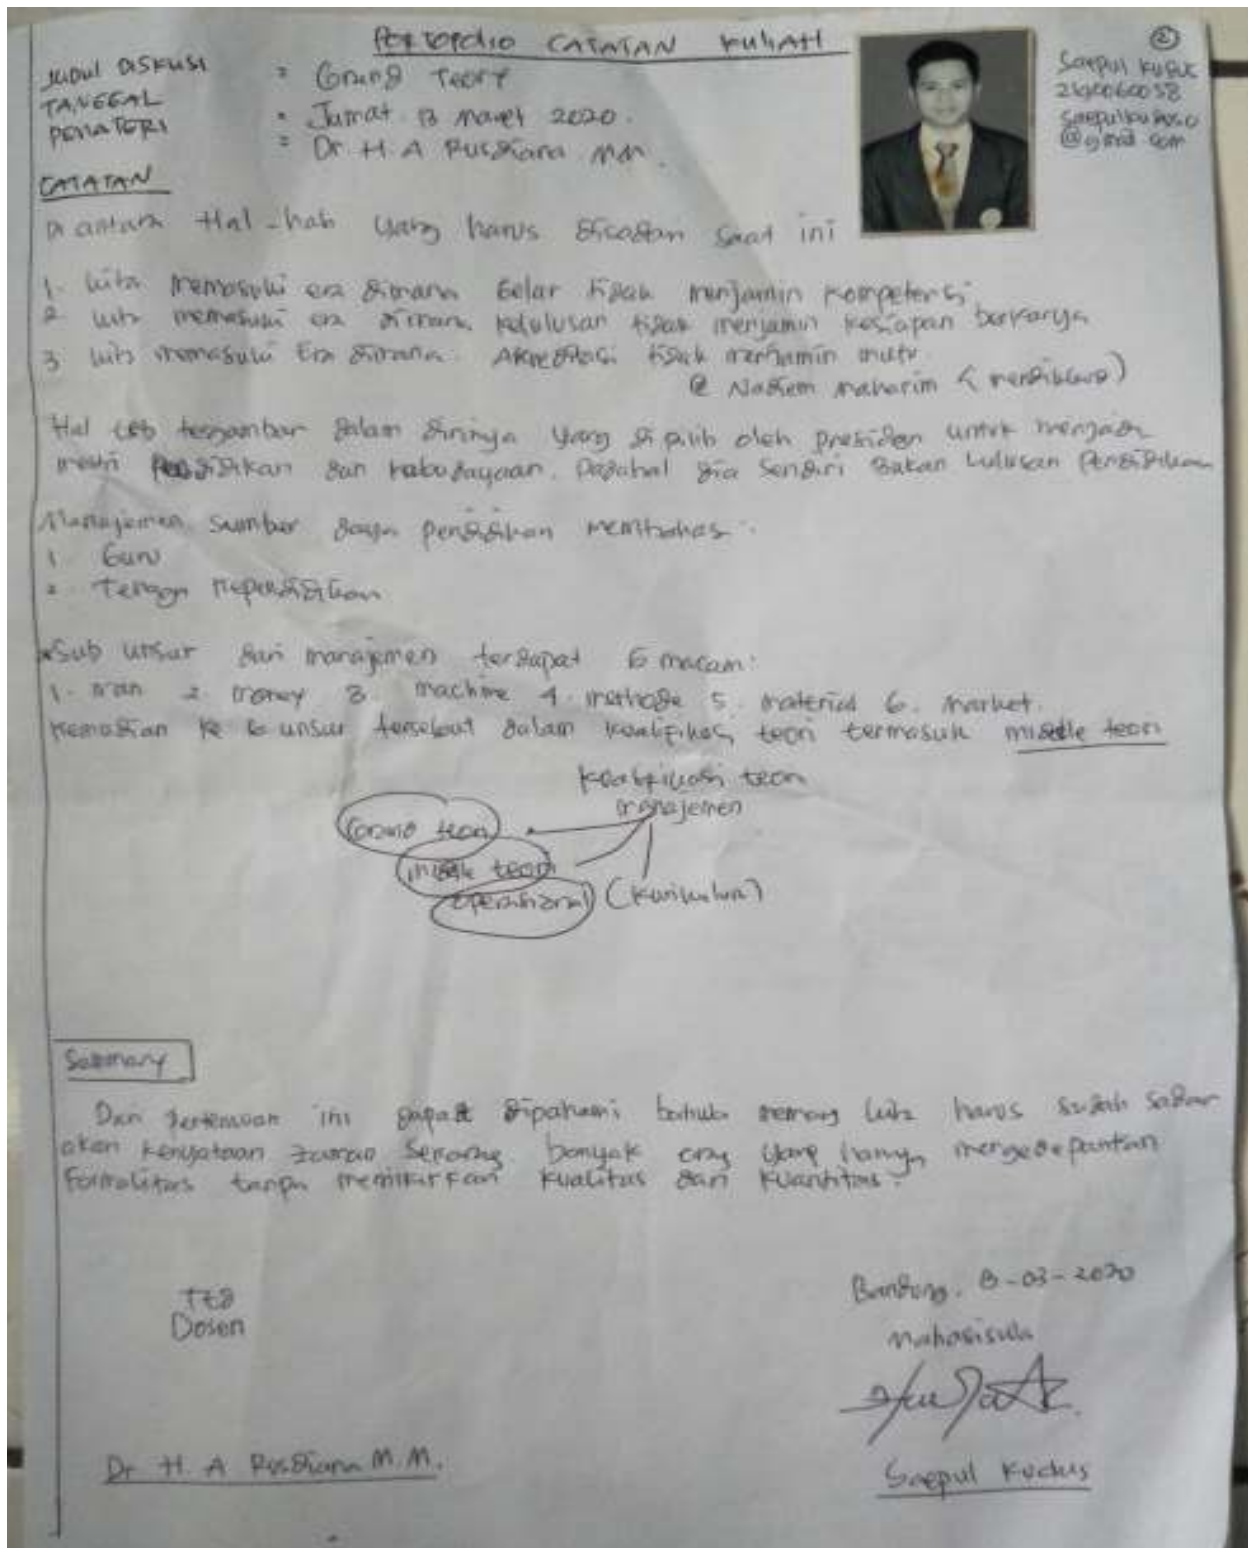 Portopolio CATATAN KULIAH
②
JUDUL DISKUSI : Grand Teory
TANGGAL : Jumat 13 Maret 2020.
PEMATERI : Dr. H. A Rusdiana MM.
Saepul Kudus
@gmail com
CATATAN
Di antara Hal-hal yang harus disadari saat ini
1. kita memasuki era dimana Gelar tidak menjamin kompetensi
2. kita memasuki era dimana kelulusan tidak menjamin kesiapan berkarya
3 kita memasuki Era dimana Akreditasi tidak menjamin mutu
@ Nadiem maharim (mendikbud)
Hal tsb tergambar dalam dirinya yang di pilih oleh presiden untuk menjadi
mentri Pendidikan dan kebudayaan. Padahal dia sendiri Bukan Lulusan Pendidikan
Manajemen Sumber daya pendidikan membahas :
1. Guru
2. Tenaga Kependidikan
*Sub unsur dari manajemen terdapat 6 macam:
1. man 2. money 3. machine 4. methode 5. material 6. market.
Kemudian Ke 6 unsur tersebut dalam kualifikasi teori termasuk middle teori
Kualifikasi teori
manajemen
Grand teori
middle teori
operasional (Kurikulum)
Summary
Dari Pertemuan ini dapat dipahami bahwa memang kita harus sudah sadar
akan kenyataan zaman Sekarang banyak orang yang hanya mengedepankan
Formalitas tanpa memikirkan Kualitas dan Kuantitas.
Bandung, 13-03-2020
Ttd
Dosen
Mahasiswa
Dr H. A Rusdiana M.M.
Saepul Kudus